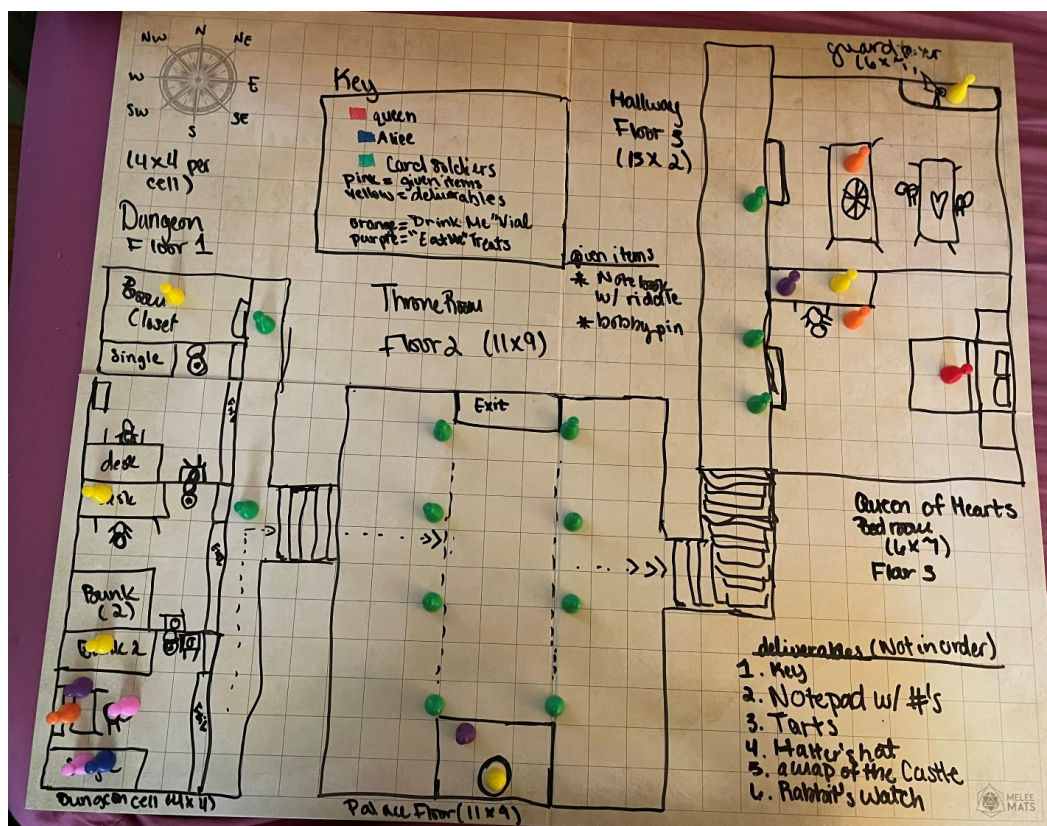 N
NW
NE
W
E
SW
SE
S
(4x4 per
cell)
Dungeon
Floor 1
Key
queen
Alice
Card Soldiers
pink = given items
yellow = deliverables
orange = "Drink Me" Vial
purple = "Eat Me" Treats
Hallway
Floor 3
(13 x 2)
given items
* Notebook
w/ riddle
* bobby pin
Throne Room
Floor 2 (11x9)
Closet
Single
desk
Bunk
(2)
Exit
Queen of Hearts
Bedroom
Floor 3
deliverables (Not in order)
1. Key
2. Notepad w/ #'s
3. Tarts
4. Hatter's hat
5. a map of the Castle
6. Rabbit's Watch
Dungeon cell (4x4)
Palace Floor (11x9)
MELEE
MATS